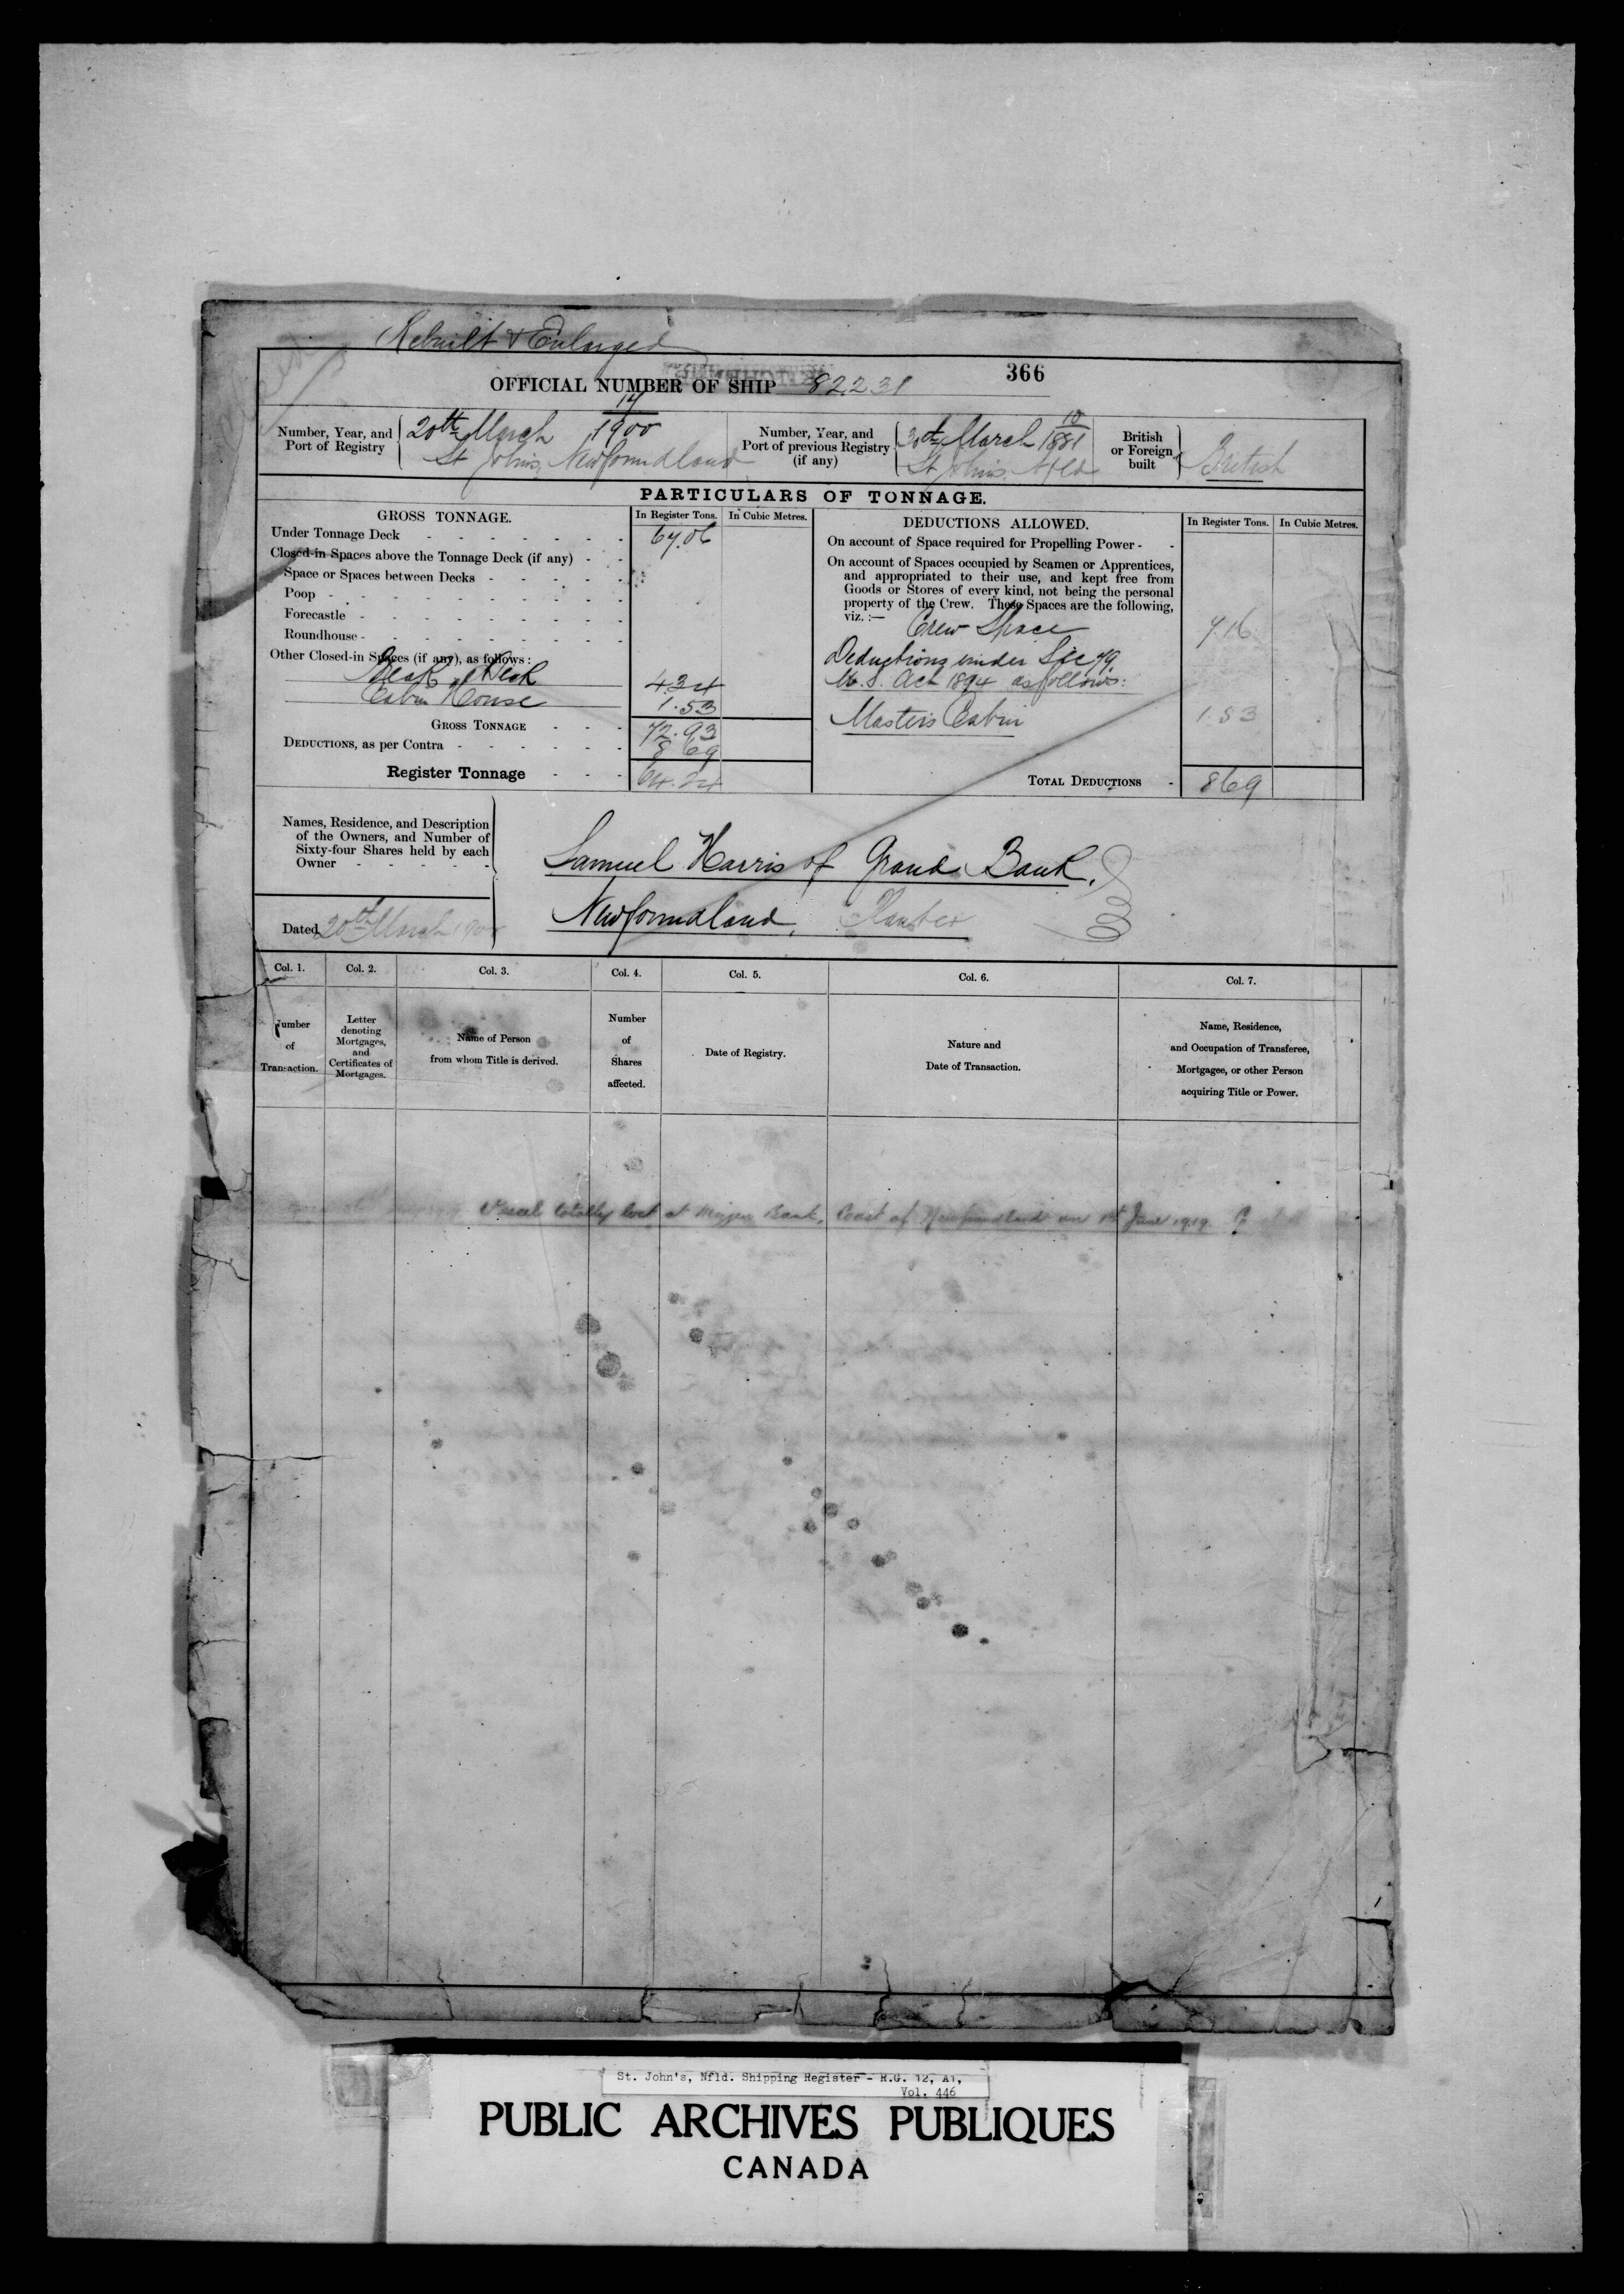 Rebuilt & Enlarged
366
OFFICIAL NUMBER OF SHIP 82231
Number, Year, and Port of Registry
14
20th March 1900
St John's, Newfoundland
Number, Year, and Port of previous Registry (if any)
10
30th March 1881
St John's Nfld
British or Foreign built
British
PARTICULARS OF TONNAGE.
GROSS TONNAGE.
In Register Tons. In Cubic Metres.
Under Tonnage Deck 67.06
Closed-in Spaces above the Tonnage Deck (if any)
Space or Spaces between Decks
Poop
Forecastle
Roundhouse
Other Closed-in Spaces (if any), as follows:
Break Deck 4.34
Cabin House 1.53
GROSS TONNAGE 72.93
DEDUCTIONS, as per Contra 8 69
Register Tonnage 64.24
DEDUCTIONS ALLOWED.
In Register Tons. In Cubic Metres.
On account of Space required for Propelling Power
On account of Spaces occupied by Seamen or Apprentices,
and appropriated to their use, and kept free from
Goods or Stores of every kind, not being the personal
property of the Crew. These Spaces are the following,
viz.:—
Crew Space 7.16
Deductions under Sec 79.
M.S. Act 1894 as follows:
Masters Cabin 1.53
TOTAL DEDUCTIONS 869
Names, Residence, and Description
of the Owners, and Number of
Sixty-four Shares held by each
Owner
Samuel Harris of Grand Bank,
Newfoundland, Planter
Dated 20th March 1900
Col. 1. Col. 2. Col. 3. Col. 4. Col. 5. Col. 6. Col. 7.
Number of Transaction.
Letter denoting Mortgages, and Certificates of Mortgages.
Name of Person from whom Title is derived.
Number of Shares affected.
Date of Registry.
Nature and Date of Transaction.
Name, Residence, and Occupation of Transferee, Mortgagee, or other Person acquiring Title or Power.
Vessel totally lost at Bank, Coast of Newfoundland on 1st June 1919.
St. John's, Nfld. Shipping Register - R.G. 12, A1,
Vol. 446
PUBLIC ARCHIVES PUBLIQUES
CANADA